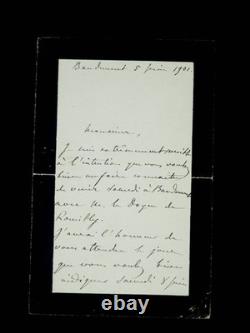 Baudemont 5 juin 1901.
Monsieur,
Je suis extrêmement sensible
à l'intention que vous voulez
bien me faire connaître
de venir samedi à Baudemont
avec M. le Doyen de
Romilly.
J'aurai l'honneur de
vous attendre le jour
que vous voulez bien
indiquer samedi 8 juin
© thebay.fr